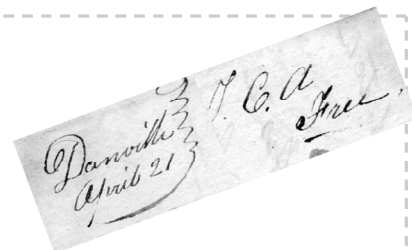 Danville
April 21
T. C. A
Free